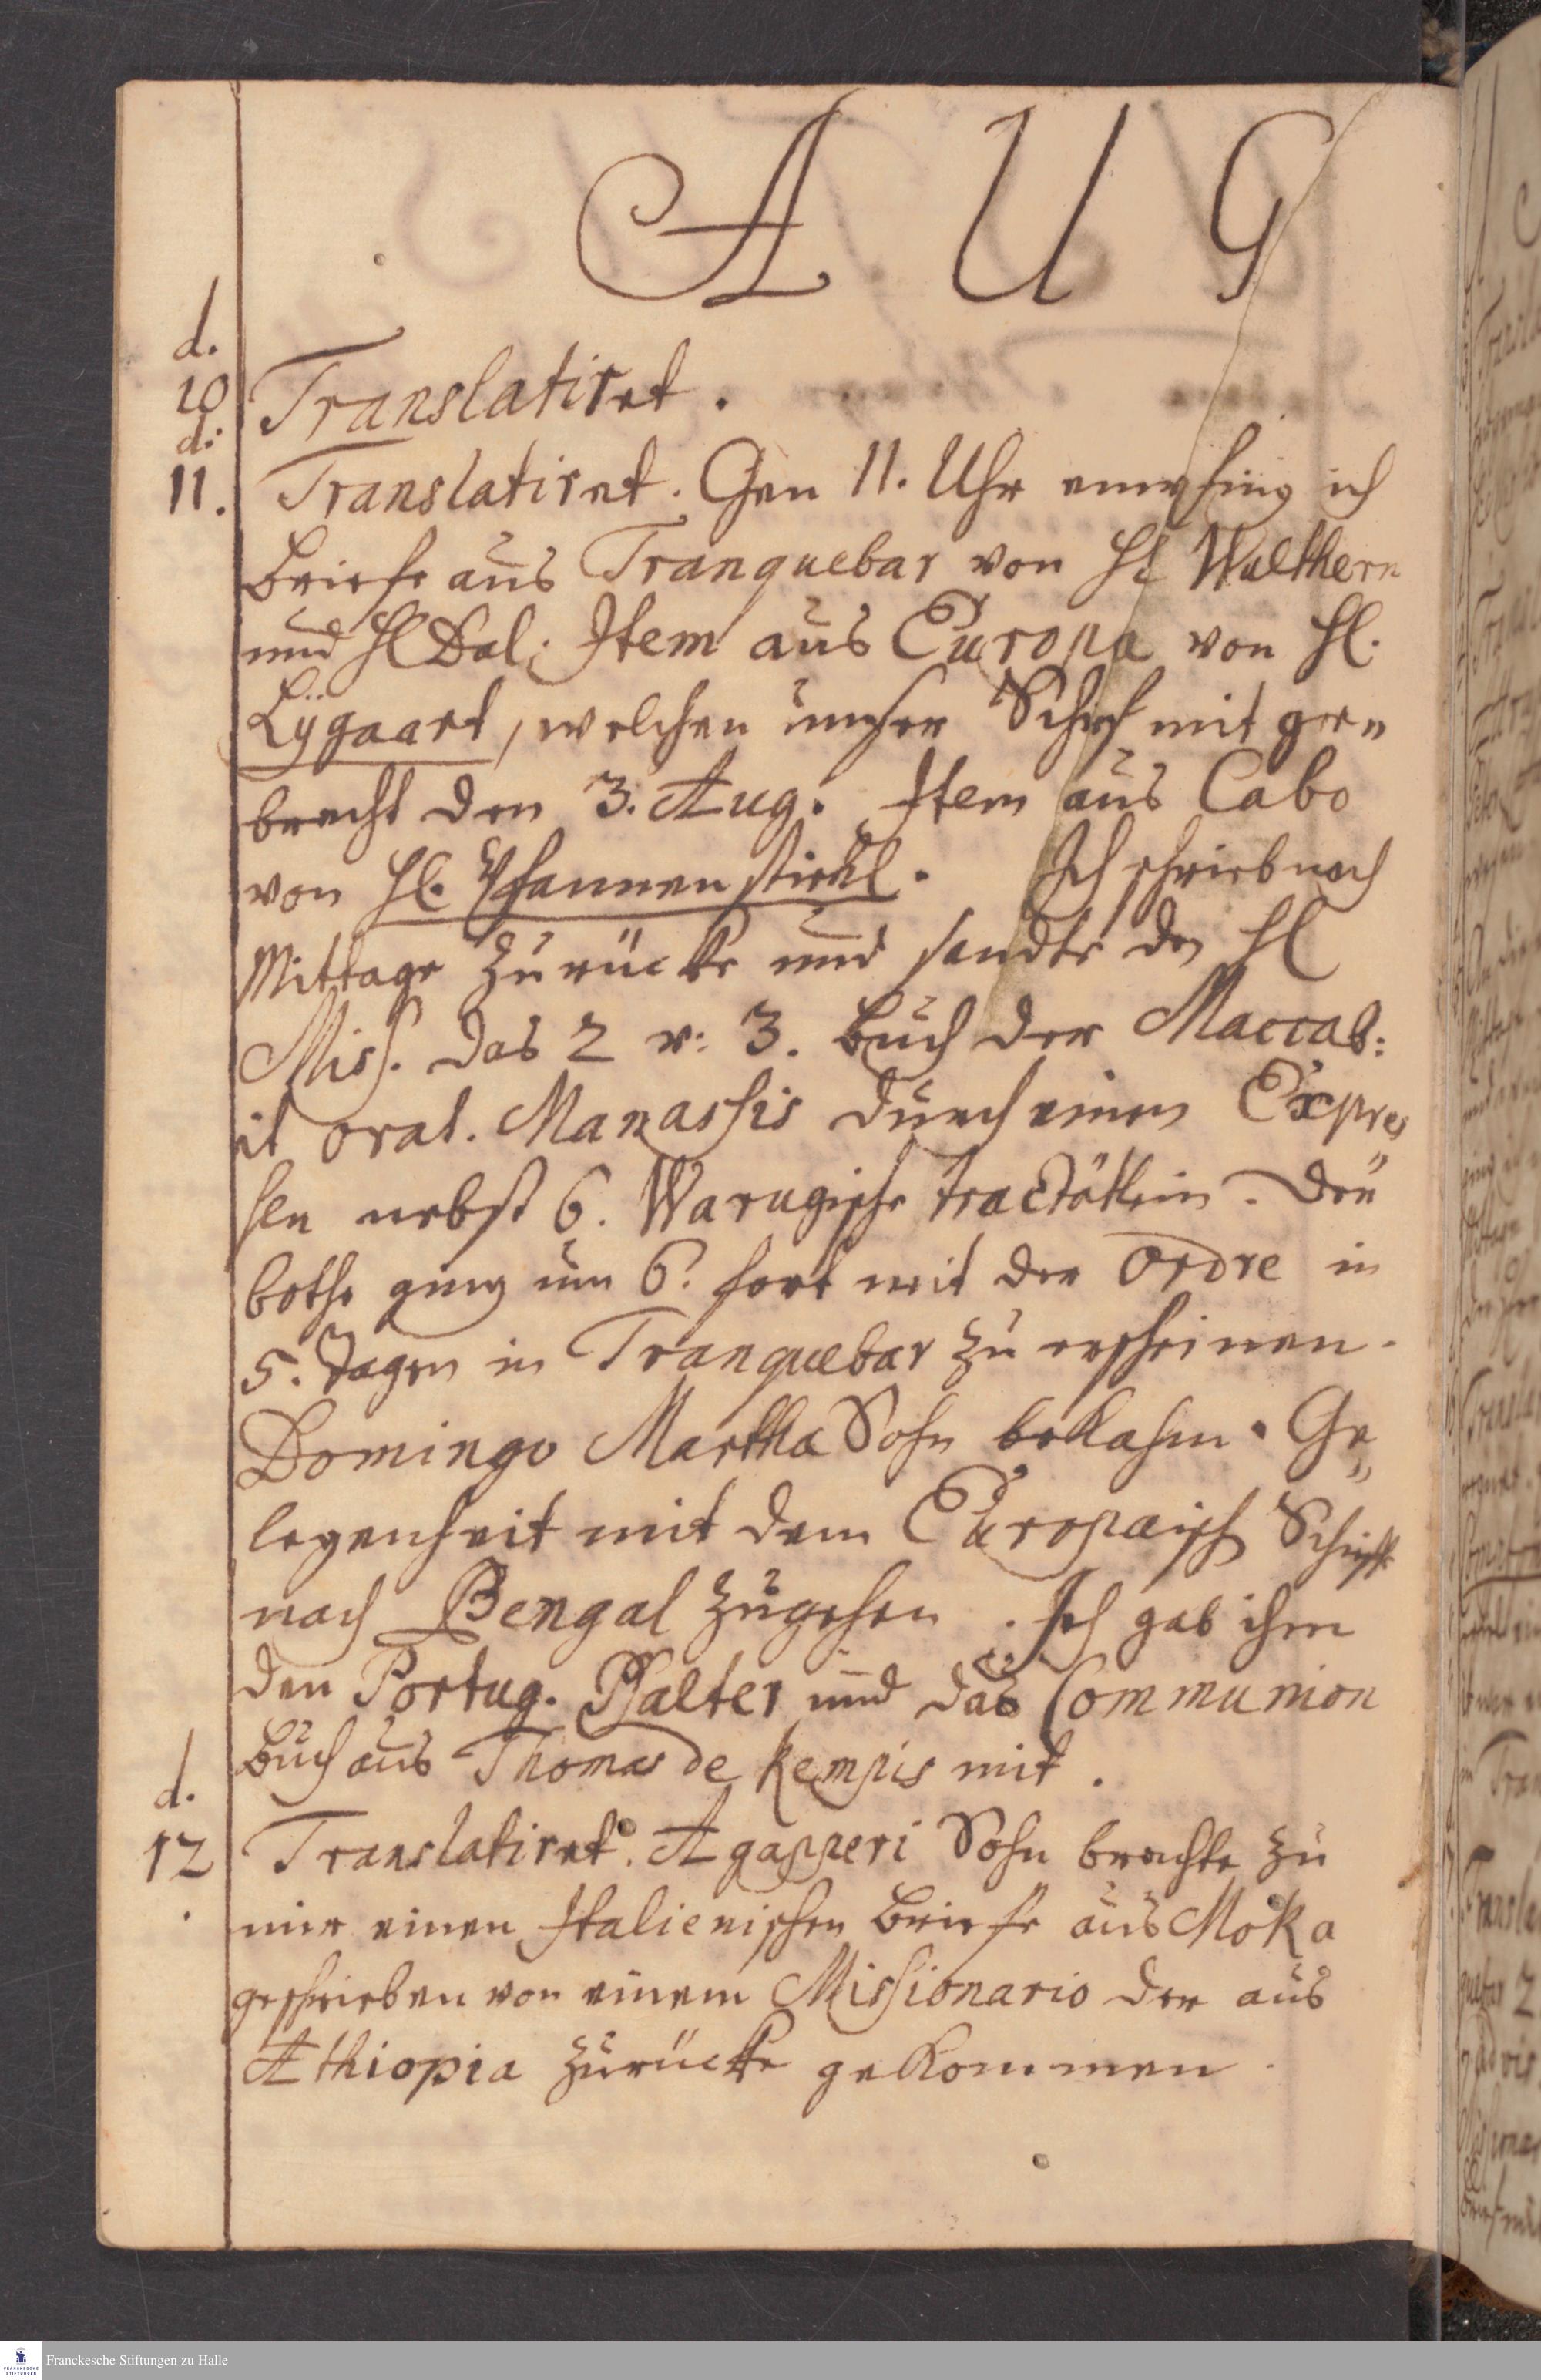 A U G
d.
10 Translatiret.
d:
11. Translatiret. Gen 11. Uhr empfing ich
Briefe aus Tranquebar von Hl Walthern
und Hl Dal; Item aus Europa von Hl.
Lÿgaart, welchen unser Schif mit ge=
bracht den 3. Aug. Item aus Cabo
von Hl. Pfannenstiehl. Ich schrieb nach
Mittage zurücke und sandte den Hl
Miss. das 2 v: 3. Buch der Maccab:
it orat. Manassis durch einen Expres
sen nebst 6. Warugische tractätlein. Der
bothe ging um 6. fort mit der Ordre in
5. Tagen in Tranquebar zu erscheinen.
Domingo Martha Sohn bekahm Ge=
legenheit mit dem Europaisch Schiffe
nach Bengal zugehen. Ich gab ihm
den Portug. Psalter und das Communion
Buch aus Thomas de Kempis mit.
d.
12 Translatiret. Agapperi Sohn brachte zu
mir einen Italienischen Briefe aus Moka
geschrieben von einem Missionario der aus
Æthiopia zurücke gekommen.
Franckesche Stiftungen zu Halle